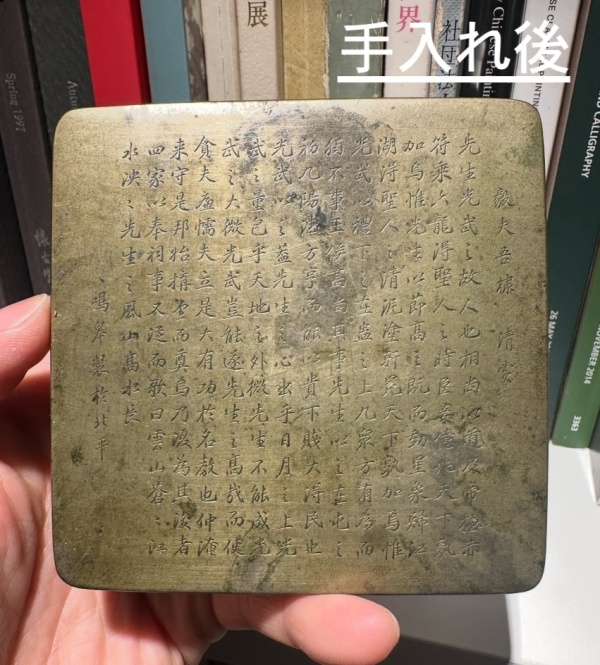 手入れ後
毅夫吾棣 清
先生光武之故人也相尚以道及帝握赤
符乘六龍得聖人之時臣妾億兆天下孰
加焉惟先生以節高之既而動星象歸江
湖得聖人之清泥塗軒冕天下孰加焉惟
光武以禮下之在蠱之上九眾方有為而
獨不事王侯高尚其事先生以之在屯之
初九陽德方亨而能以貴下賤大得民也
光武以之蓋先生之心出乎日月之上光
武之量包乎天地之外微先生不能成光
武之大微光武豈能遂先生之高哉而使
貪夫廉懦夫立是大有功於名教也仲淹
来守是邦始搆堂而奠焉乃復為其後者
四家以奉祠事又從而歌曰雲山蒼〻江
水泱〻先生之風山高水長
鳴皋製於北平
Spring 1997
展
界
Chinese Painting
CALLIGRAPHY
26 MAY
NOVEMBER 2014
3363